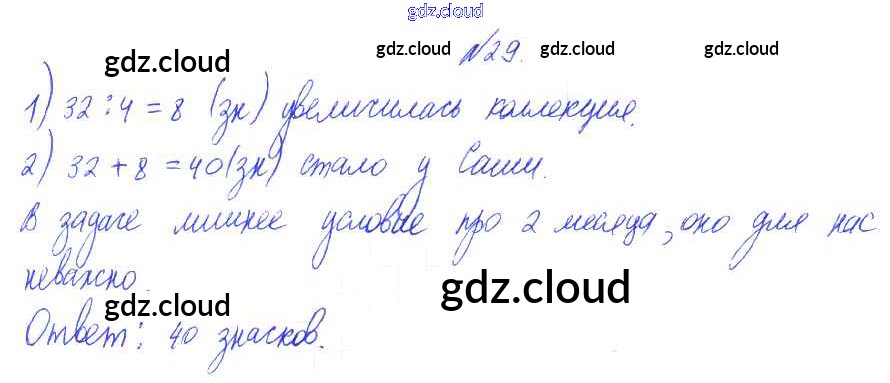 gdz.cloud
gdz.cloud gdz.cloud №29. gdz.cloud gdz.cloud
1) 32 : 4 = 8 (зн) увеличилась коллекция.
2) 32 + 8 = 40 (зн) стало у Саши.
В задаче лишнее условие про 2 месяца, оно для нас
неважно.
gdz.cloud gdz.cloud
Ответ: 40 значков.